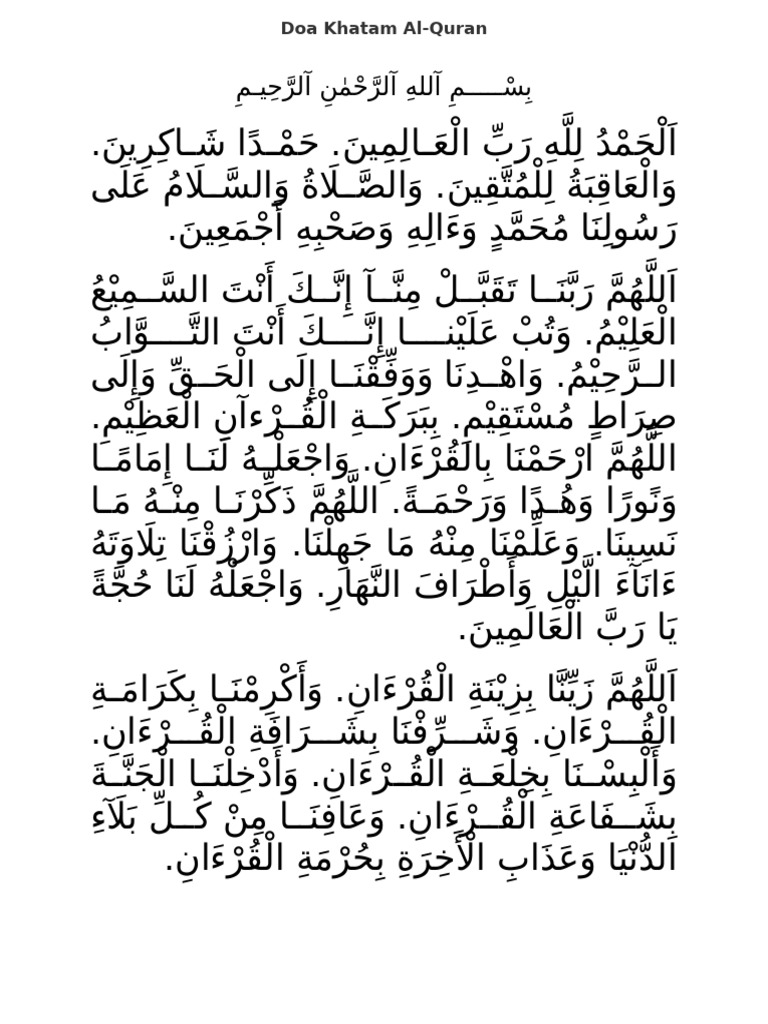 Doa Khatam Al-Quran
بِسْـــــمِ ٱللهِ ٱلرَّحْمٰنِ ٱلرَّحِيـمِ
اَلْحَمْدُ لِلَّهِ رَبِّ الْعَـالِمِينَ. حَمْـدًا شَـاكِرِينَ.
وَالْعَاقِبَةُ لِلْمُتَّقِينَ. وَالصَّـلَاةُ وَالسَّـلَامُ عَلَى
رَسُولِنَا مُحَمَّدٍ وَءَالِهِ وَصَحْبِهِ أَجْمَعِينَ.
اَللَّهُمَّ رَبَّنَــا تَقَبَّــلْ مِنَّــآ إِنَّــكَ أَنْتَ السَّــمِيْعُ
الْعَلِيْمُ. وَتُبْ عَلَيْنـــا إِنَّـــكَ أَنْتَ التَّـــوَّابُ
الــرَّحِيْمُ. وَاهْــدِنَا وَوَفِّقْنَــا إِلَى الْحَــقِّ وَإِلَى
صِرَاطٍ مُسْتَقِيْمٍ. بِبَرَكَــةِ الْقُــرْءآنِ الْعَظِيْمِ.
اللَّهُمَّ ارْحَمْنَا بِالقُرْءَانِ. وَاجْعَلْـهُ لَنَـا إِمَامًـا
وَنُورًا وَهُـدًا وَرَحْمَـةً. اللَّهُمَّ ذَكِّرْنَـا مِنْـهُ مَـا
نَسِينَا. وَعَلِّمْنَا مِنْهُ مَا جَهِلْنَا. وَارْزُقْنَا تِلَاوَتَهُ
ءَانَآءَ الَّيْلِ وَأَطْرَافَ النَّهَارِ. وَاجْعَلْهُ لَنَا حُجَّةً
يَا رَبَّ الْعَالَمِينَ.
اَللَّهُمَّ زَيِّنَّا بِزِيْنَةِ الْقُرْءَانِ. وَأَكْرِمْنَـا بِكَرَامَـةِ
الْقُـــرْءَانِ. وَشَـــرِّفْنَا بِشَـــرَافَةِ الْقُـــرْءَانِ.
وَأَلْبِسْـنَا بِخِلْعَـةِ الْقُـرْءَانِ. وَأَدْخِلْنَـا الْجَنَّـةَ
بِشَــفَاعَةِ الْقُــرْءَانِ. وَعَافِنَــا مِنْ كُــلِّ بَلَآءِ
الدُّنْيَا وَعَذَابِ الْأَخِرَةِ بِحُرْمَةِ الْقُرْءَانِ.